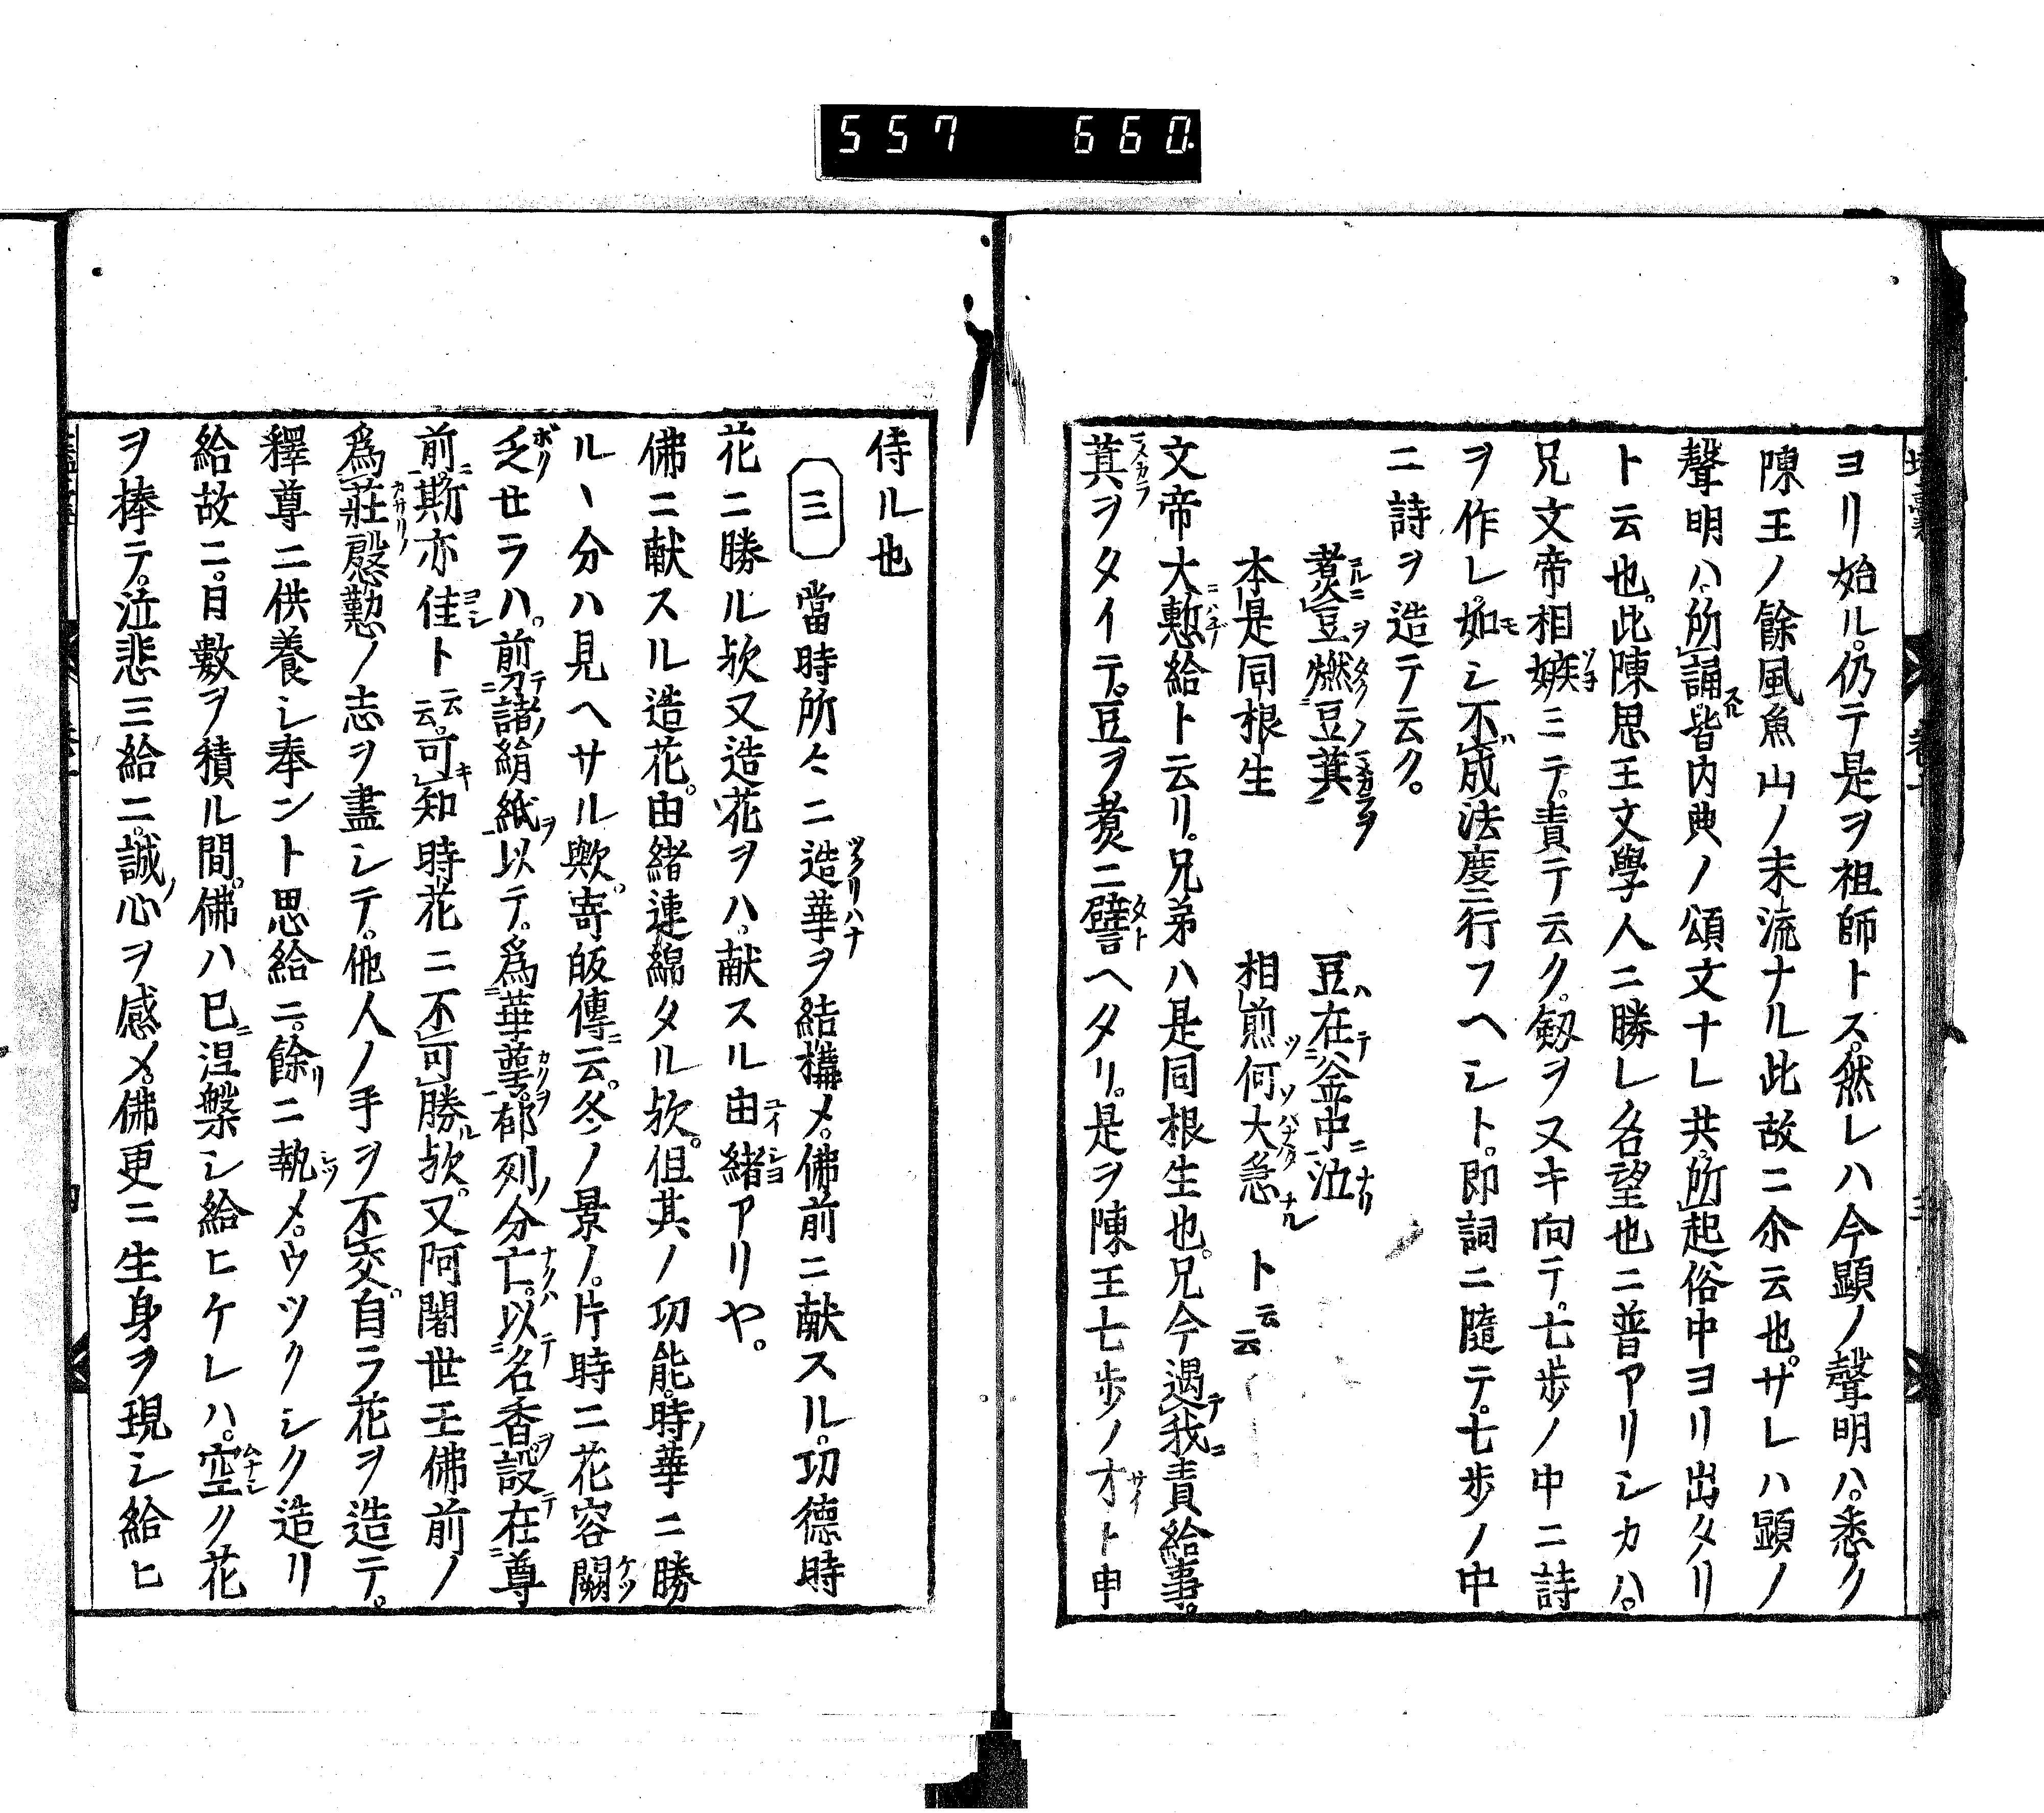 557 660
ヨリ始ル。仍テ是ヲ祖師トス。然レハ今顕ノ聲明ハ。悉ク
陳王ノ餘風魚山ノ末流ナル此故ニ尒云也。サレハ顕ノ
聲明ハ。所誦皆内典ノ頌文ナレ共。所起俗中ヨリ出タリ
ト云也。此陳思王文學人ニ勝レ名望也ニ普アリシカハ。
兄文帝相嫉ミテ。責テ云ク。劔ヲヌキ向テ。七歩ノ中ニ詩
ヲ作レ。如シ不成法度ニ行フヘシト。即詞ニ隨テ。七歩ノ中
ニ詩ヲ造テ云ク。
煑豆燃豆萁 豆在釜中泣
本是同根生 相煎何大急 ト云云
文帝大慙給ト云リ。兄弟ハ是同根生也。兄今遇我責給事。
萁ヲタイテ。豆ヲ煑ニ譬ヘタリ。是ヲ陳王七歩ノ才ト申
侍ル也
三 當時所々ニ造華ヲ結構メ。佛前ニ献スル。功德時
花ニ勝ル欤又造花ヲハ。献スル由緒アリヤ。
佛ニ献スル造花。由緒連綿タル欤。但其ノ功能。時華ニ勝
ルヽ分ハ見ヘサル歟。寄皈傳云。冬ノ景ノ。片時ニ花容闕
乏セラハ。前剪諸絹紙以テ。爲華蕚。郁列分亡。以名香設在尊
前。斯亦佳ト云云。可知時花ニ不可勝欤。又阿闍世王佛前ノ
爲莊慇懃ノ志ヲ盡シテ。他人ノ手ヲ不交。自ラ花ヲ造テ。
釋尊ニ供養シ奉ント思給ニ。餘リニ執メ。ウツクシク造リ
給故ニ。日數ヲ積ル間。佛ハ已ニ涅槃シ給ヒケレハ。空ク花
ヲ捧テ。泣悲ミ給ニ。誠心ヲ感メ。佛更ニ生身ヲ現シ給ヒ